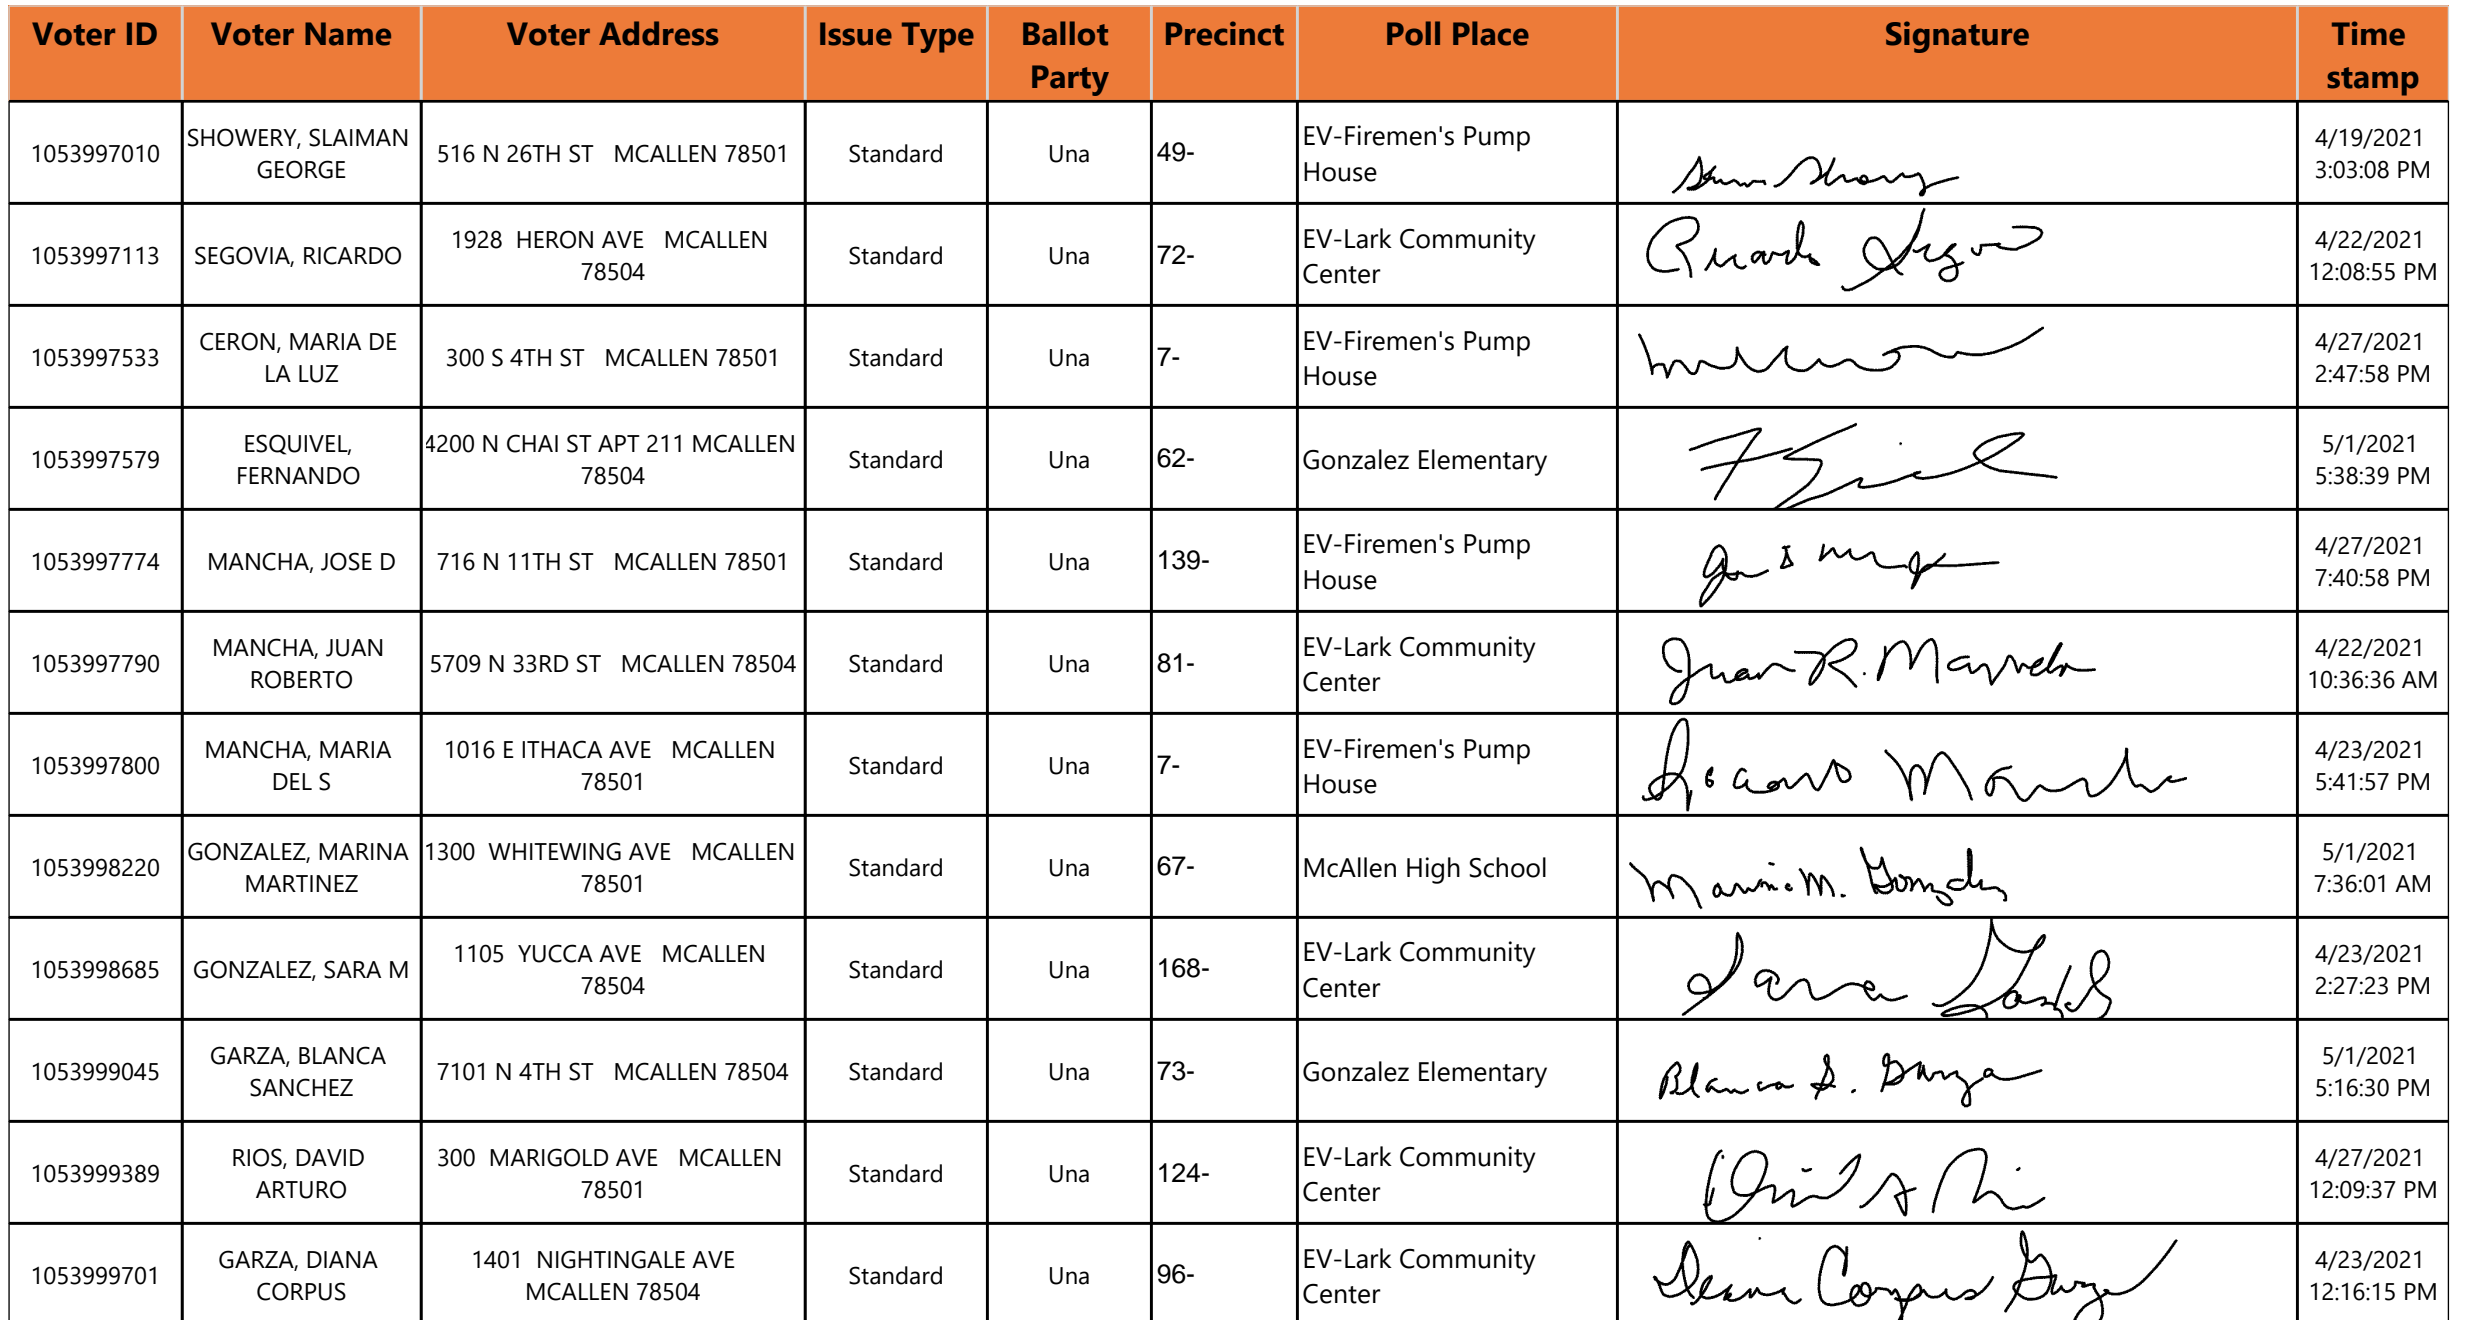 Voter ID Voter Name Voter Address Issue Type Ballot Party Precinct Poll Place Signature Time stamp
1053997010 SHOWERY, SLAIMAN GEORGE 516 N 26TH ST MCALLEN 78501 Standard Una 49- EV-Firemen's Pump House 4/19/2021 3:03:08 PM
1053997113 SEGOVIA, RICARDO 1928 HERON AVE MCALLEN 78504 Standard Una 72- EV-Lark Community Center Ricardo Segovia 4/22/2021 12:08:55 PM
1053997533 CERON, MARIA DE LA LUZ 300 S 4TH ST MCALLEN 78501 Standard Una 7- EV-Firemen's Pump House 4/27/2021 2:47:58 PM
1053997579 ESQUIVEL, FERNANDO 4200 N CHAI ST APT 211 MCALLEN 78504 Standard Una 62- Gonzalez Elementary 5/1/2021 5:38:39 PM
1053997774 MANCHA, JOSE D 716 N 11TH ST MCALLEN 78501 Standard Una 139- EV-Firemen's Pump House 4/27/2021 7:40:58 PM
1053997790 MANCHA, JUAN ROBERTO 5709 N 33RD ST MCALLEN 78504 Standard Una 81- EV-Lark Community Center Juan R. Mancha 4/22/2021 10:36:36 AM
1053997800 MANCHA, MARIA DEL S 1016 E ITHACA AVE MCALLEN 78501 Standard Una 7- EV-Firemen's Pump House Mancha 4/23/2021 5:41:57 PM
1053998220 GONZALEZ, MARINA MARTINEZ 1300 WHITEWING AVE MCALLEN 78501 Standard Una 67- McAllen High School Marina M. Gonzalez 5/1/2021 7:36:01 AM
1053998685 GONZALEZ, SARA M 1105 YUCCA AVE MCALLEN 78504 Standard Una 168- EV-Lark Community Center Sara 4/23/2021 2:27:23 PM
1053999045 GARZA, BLANCA SANCHEZ 7101 N 4TH ST MCALLEN 78504 Standard Una 73- Gonzalez Elementary Blanca S. Garza 5/1/2021 5:16:30 PM
1053999389 RIOS, DAVID ARTURO 300 MARIGOLD AVE MCALLEN 78501 Standard Una 124- EV-Lark Community Center 4/27/2021 12:09:37 PM
1053999701 GARZA, DIANA CORPUS 1401 NIGHTINGALE AVE MCALLEN 78504 Standard Una 96- EV-Lark Community Center Diana Corpus Garza 4/23/2021 12:16:15 PM